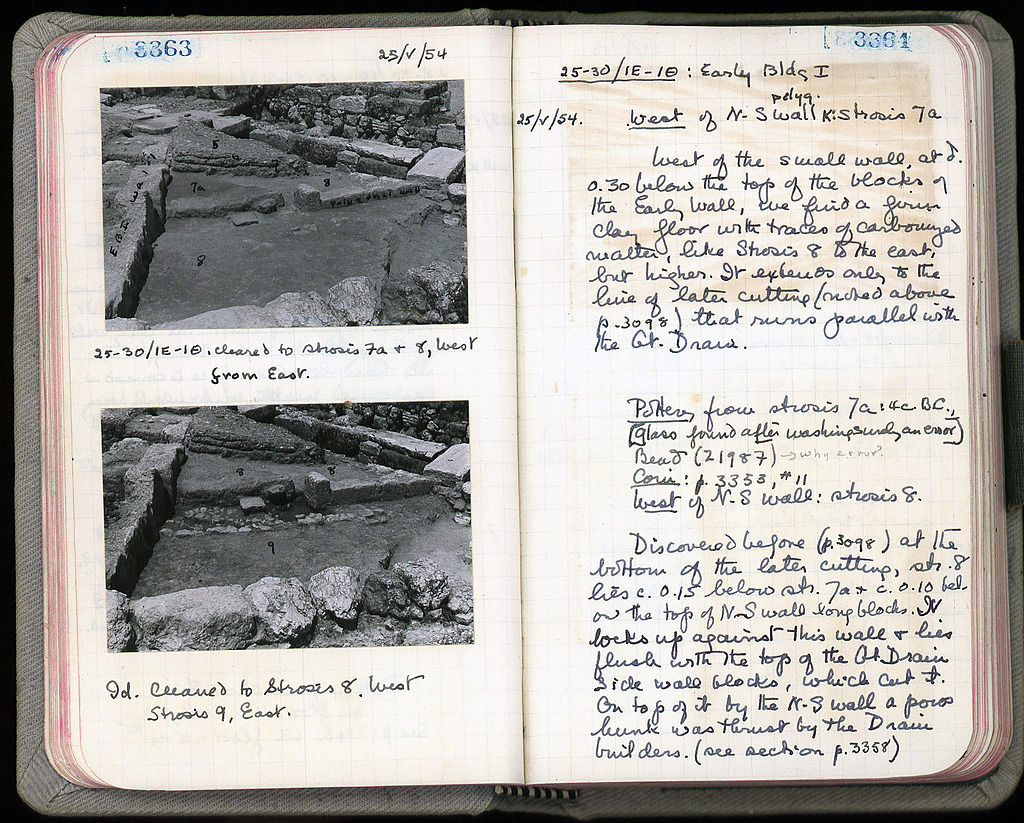 3363
25/V/54
5
7a
8
8
25-30/1E-1Θ. cleared to strosis 7a + 8, West
from East.
8
8
9
Id. Cleaned to Stroses 8, West
Strosis 9, East.
3364
25-30/1E-1Θ: Early Bldg I
polyg.
25/V/54. West of N-S wall K: Strosis 7a
West of the small wall, at d.
0.30 below the top of the blocks of
the Early Wall, we find a firm
clay floor with traces of carbonized
matter, like Strosis 8 to the east,
but higher. It extends only to the
line of later cutting (noted above
p.3098) that runs parallel with
the Gt. Drain.
Pottery from strosis 7a: 4c. BC.,
(Glass found after washing surely an error)
Bead (21987) → why error?
Coin: p. 3353, #11
West of N-S wall: strosis 8.
Discovered before (p.3098) at the
bottom of the later cutting, str. 8
lies c. 0.15 below str. 7a + c. 0.10 bel-
ow the top of N-S wall long blocks. It
locks up against this wall + lies
flush with the top of the Gt. Drain
Side wall blocks, which cut it.
On top of it by the N-S wall a poros
hunk was thrust by the Drain
builders. (see section p.3358)